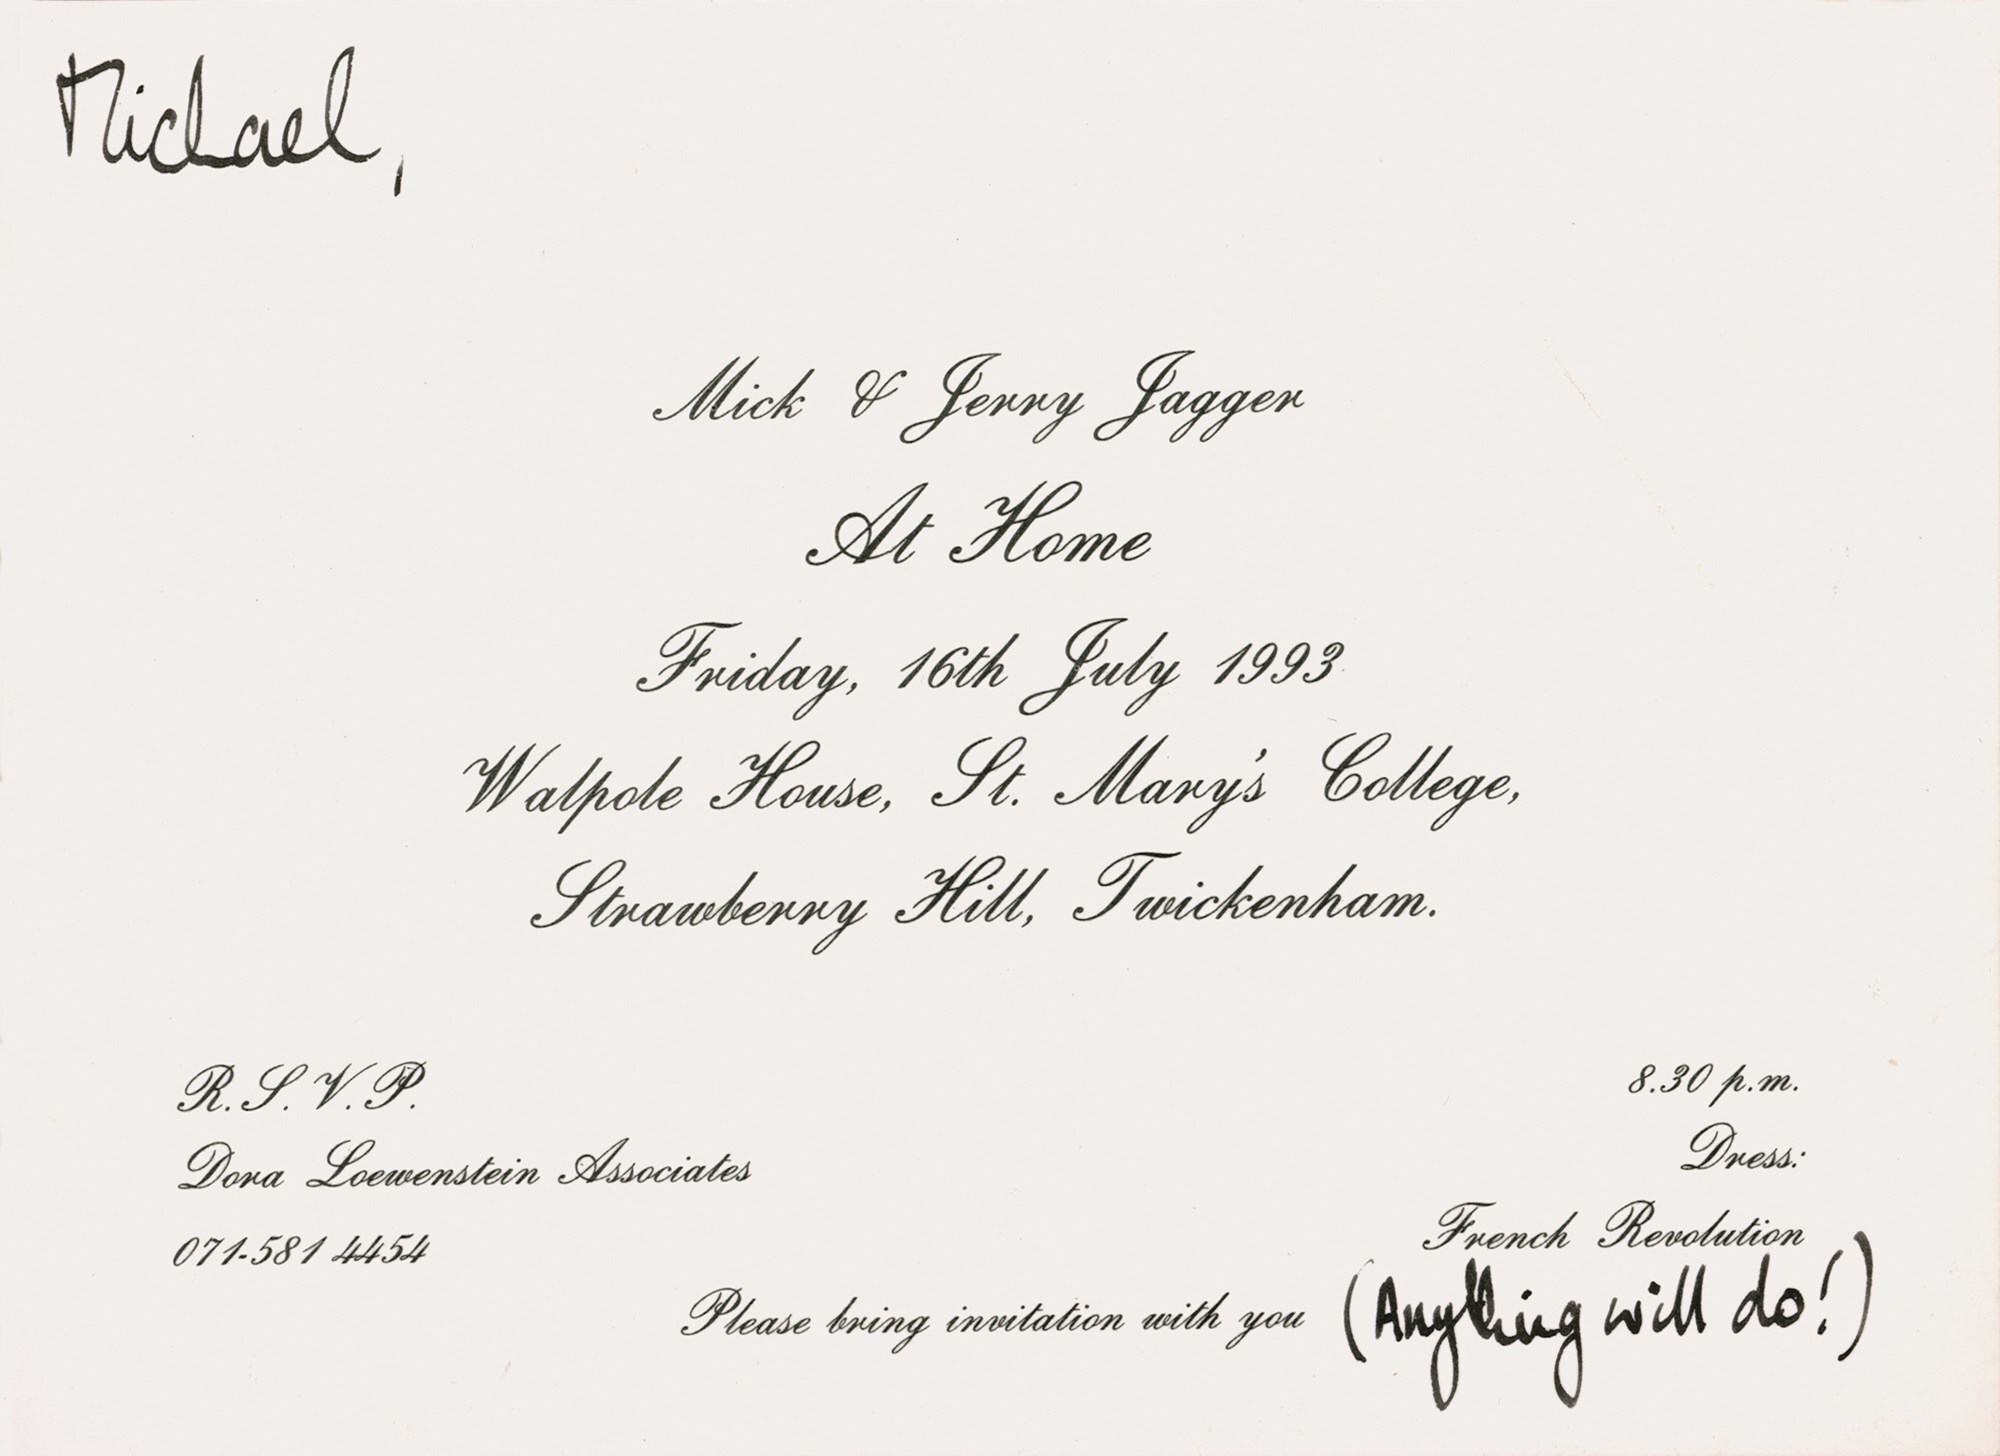 Michael,
Mick & Jerry Jagger
At Home
Friday, 16th July 1993
Walpole House, St. Mary's College,
Strawberry Hill, Twickenham.
R.S.V.P.
Dora Loewenstein Associates
071-581 4454
8.30 p.m.
Dress:
French Revolution
(Anything will do!)
Please bring invitation with you